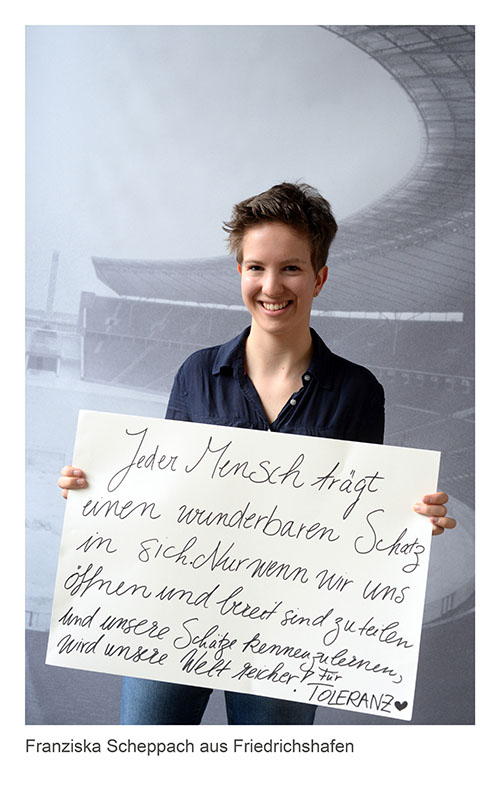 Jeder Mensch trägt
einen wunderbaren Schatz
in sich. Nur wenn wir uns
öffnen und bereit sind zu teilen
und unsere Schätze kennenzulernen,
wird unsere Welt reicher! Für
TOLERANZ ♥
Franziska Scheppach aus Friedrichshafen